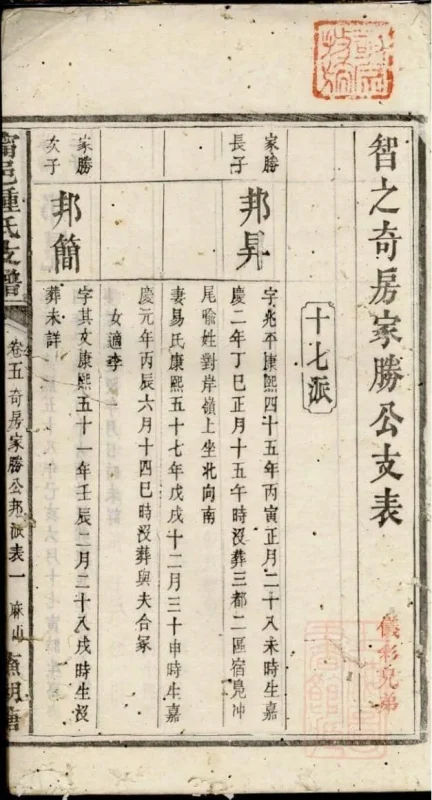 智之奇房家勝公支表
十七派
家勝
長子
邦昇
字兆平康熙四十五年丙寅正月二十八未時生嘉
慶二年丁巳正月十五午時沒葬三都二區宿凫冲
尾喻姓對岸嶺上坐北向南
妻易氏康熙五十七年戊戌十二月三十申時生嘉
慶元年丙辰六月十四巳時沒葬與夫合冢
女適李
家勝
次子
邦簡
字其文康熙五十一年壬辰二月二十八戌時生沒
葬未詳
甯邑鍾氏支譜
卷五奇房家勝公邦派表一
儀彩兄弟